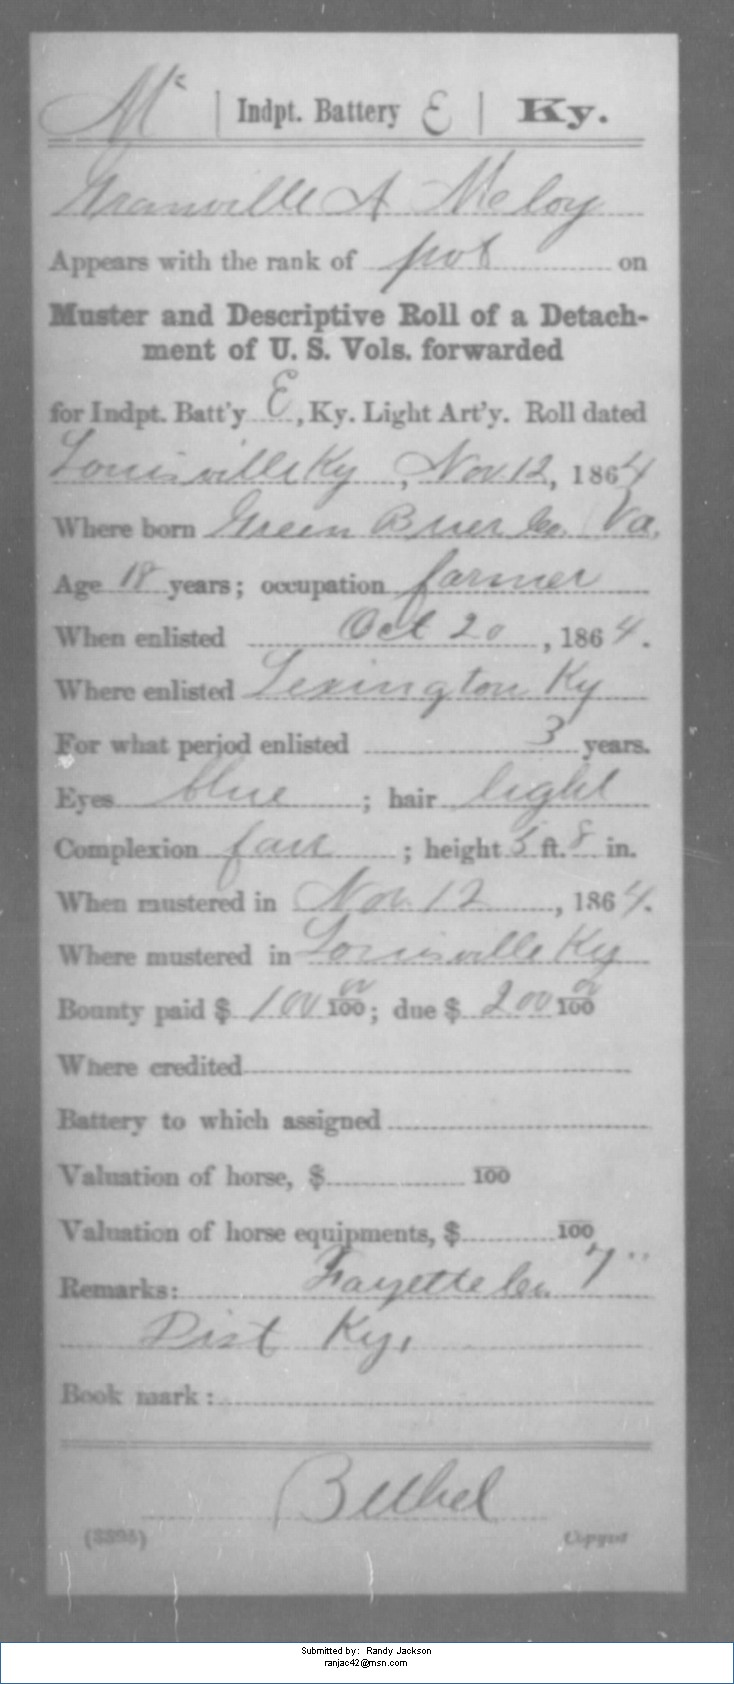 Mc | Indpt. Battery E | Ky.
Granville A McCloy
Appears with the rank of pvt on
Muster and Descriptive Roll of a Detach-
ment of U. S. Vols. forwarded
for Indpt. Batt'y E, Ky. Light Art'y. Roll dated
Louisville Ky, Nov. 12, 1864
Where born Green Brier Co. Va.
Age 18 years; occupation farmer
When enlisted Oct 20, 1864.
Where enlisted Lexington Ky
For what period enlisted 3 years.
Eyes blue; hair light
Complexion fair; height 5 ft. 8 in.
When mustered in Nov. 12, 1864.
Where mustered in Louisville Ky
Bounty paid $ 100 00/100; due $ 200 00/100
Where credited
Battery to which assigned
Valuation of horse, $ 100
Valuation of horse equipments, $ 100
Remarks: Fayette Co. 7"
Dist Ky.
Book mark:
Bethel
Copyist
Submitted by: Randy Jackson
ranjac42@msn.com